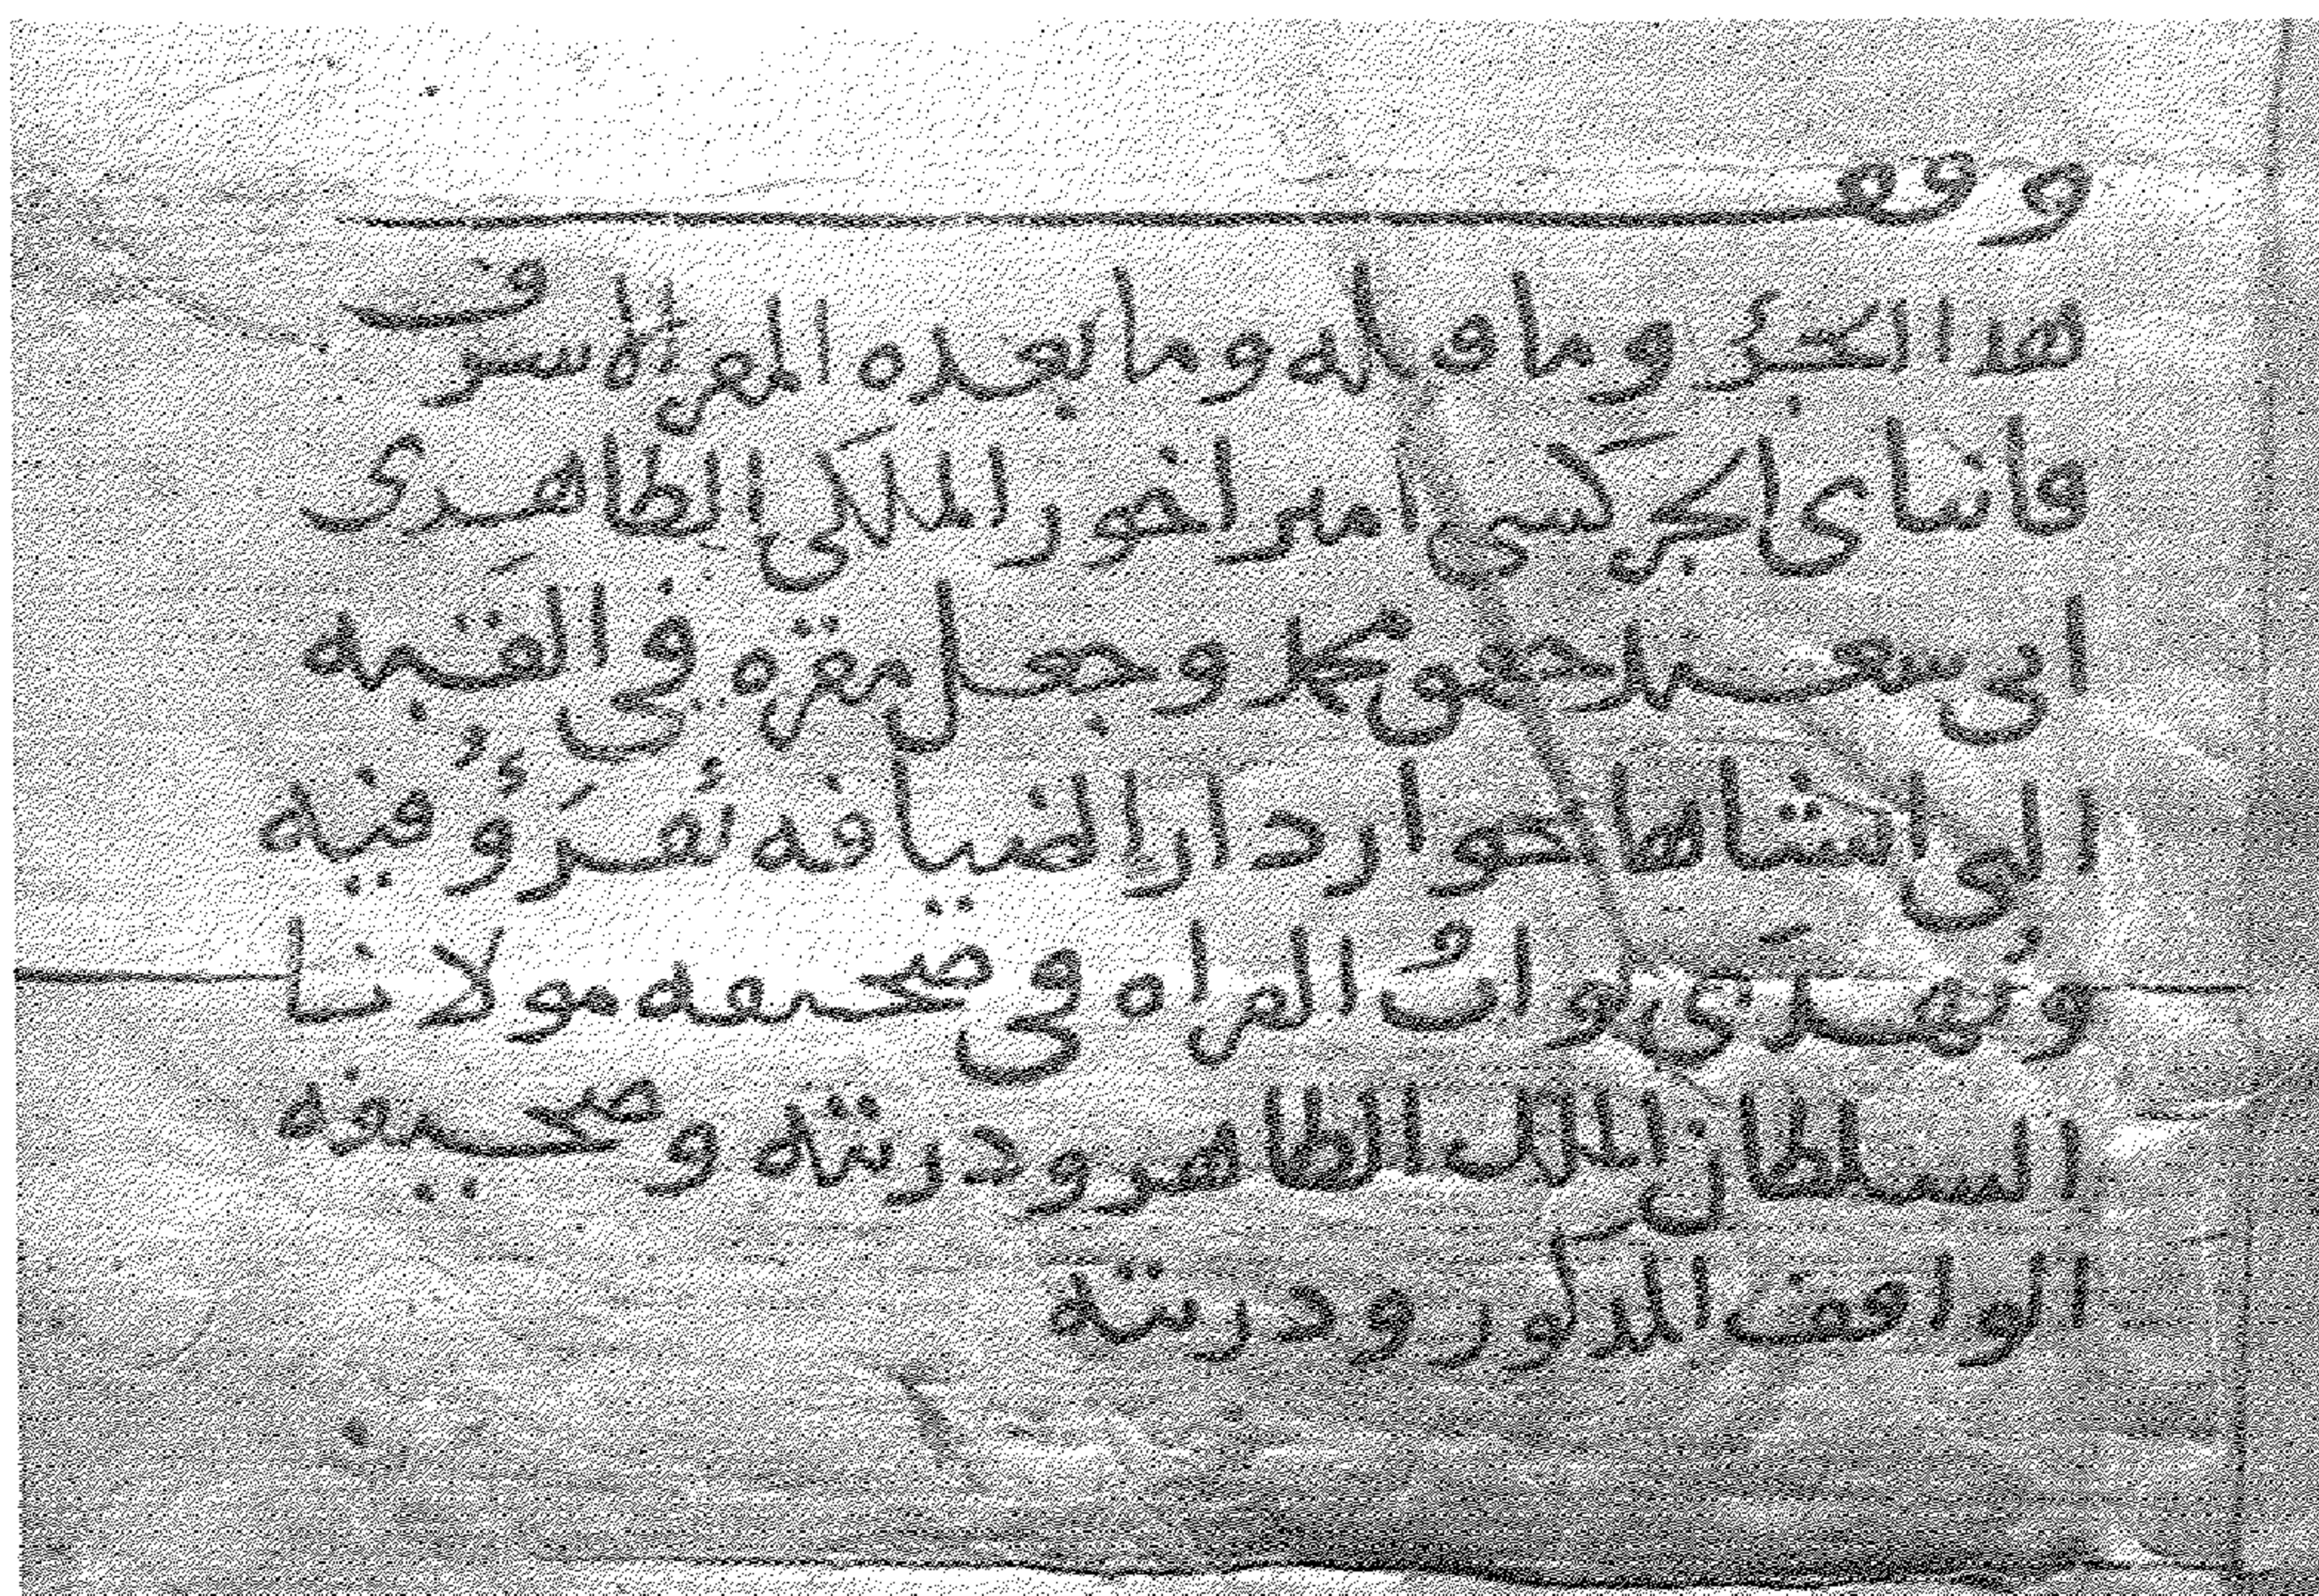 وقف
هذا الجزؤ وما قبله وما بعده المقر الاشرف
قانباى الجركسي امير اخور الملكي الظاهرى
ابي سعيد جقمق محمد وجعل مقره في القبه
التي انشاها جوار دار الضيافه تقرؤ فيه
وتهدى ثواب القراه في صحيفه مولانا
السلطان الملك الظاهر وذريته وصحيفه
الواقف المذكور وذريته